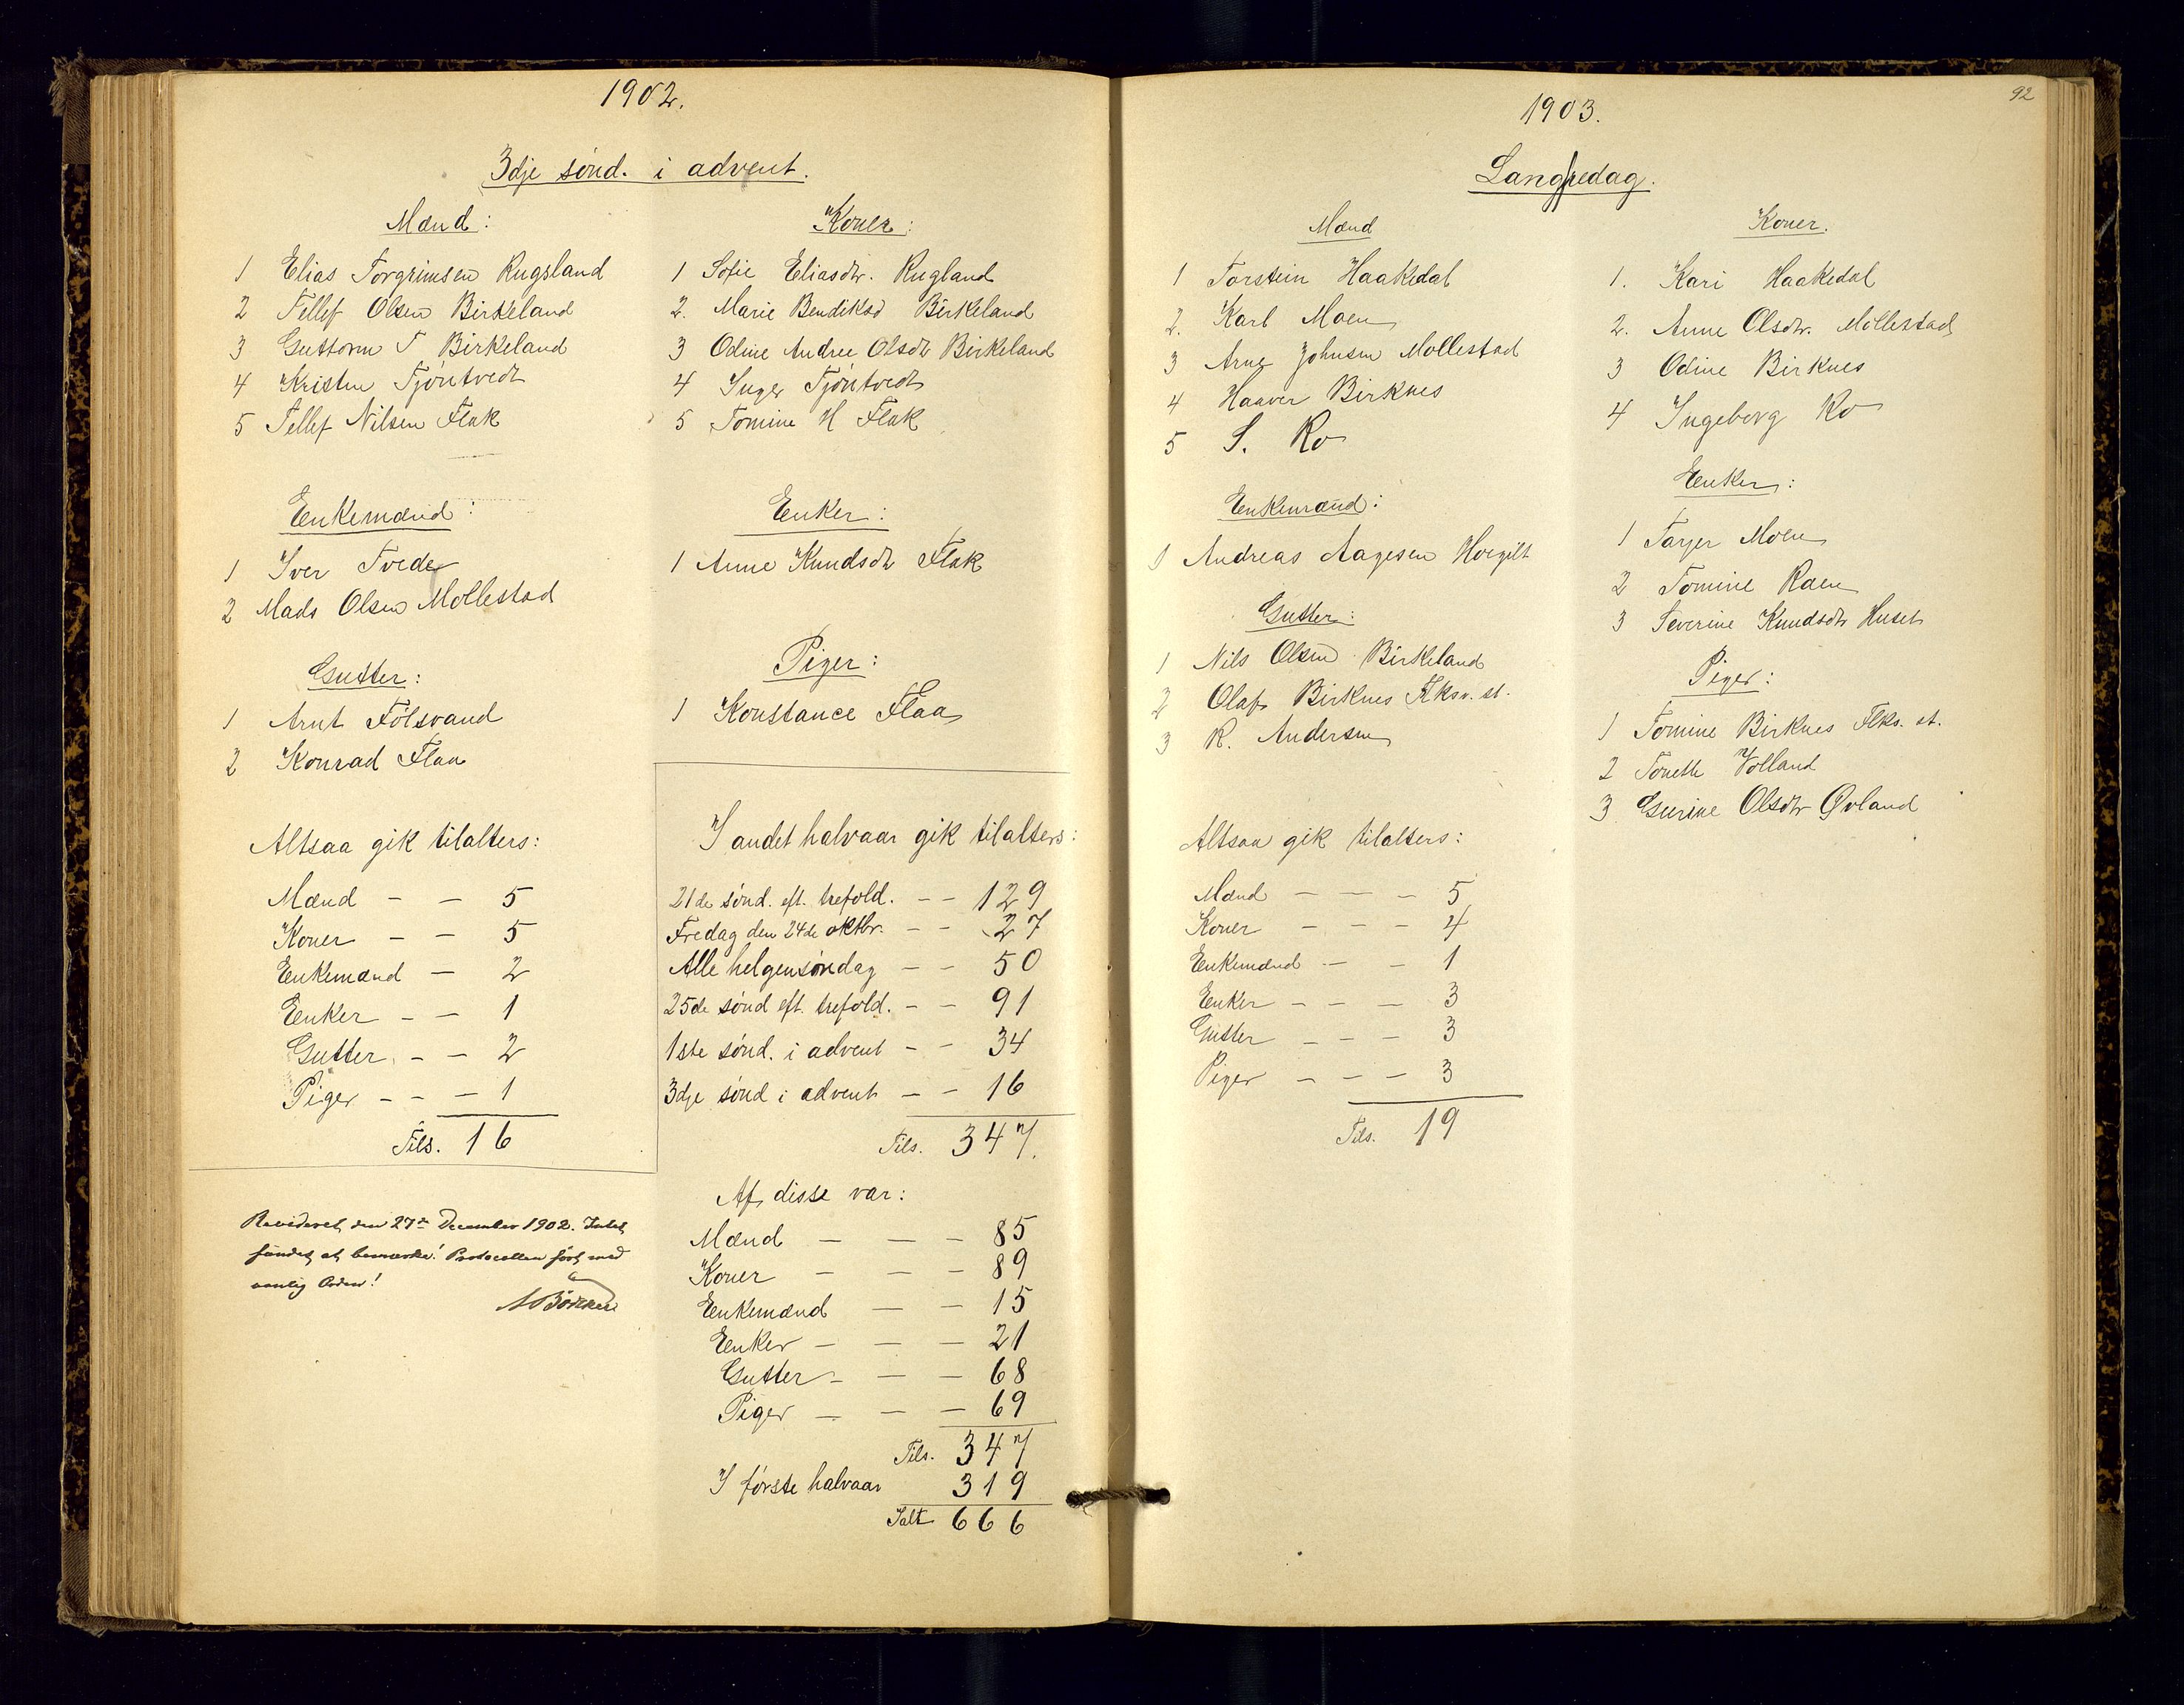 1902.
3dje sönd. i advent.
Mænd:
1 Elias Torgrimsen Rugsland
2 Tellef Olsen Birkeland
3 Guttorm T Birkeland
4 Kristen Tjöntvedt
5 Tellef Nilsen Flak
Enkemænd:
1 Iver Tvede
2 Mads Olsen Mollestad
Gutter:
1 Arnt Fölsvand
2 Konrad Flaa
Altsaa gik tilalters:
Mænd - - 5
Koner - - 5
Enkemænd - 2
Enker - - 1
Gutter - - 2
Piger - - - 1
Tils. 16
Revideret den 27de December 1902. Intet
fundet at bemærke! Protocollen ført med
vanlig Orden!
Koner:
1 Sofie Eliasdtr. Rugland
2. Marie Bendiksd Birkeland
3 Odine Andree Olsdtr Birkeland
4 Inger Tjöntvedt
5 Tomine H Flak
Enker:
1 Anne Knudsdtr Flak
Piger:
1 Konstance Flaa
I andet halvaar gik tilalters:
21de sönd. eft. trefold. - - 129
Fredag den 24de oktbr. - - 27
Alle helgensöndag - - 50
25de sönd eft. trefold. - - 91
1ste sönd. i advent - - 34
3dje sönd i advent - - 16
Tils. 347.
Af disse var:
Mænd - - - 85
Koner - - - 89
Enkemænd - - 15
Enker - - - 21
Gutter - - - 68
Piger - - - 69
Tils. 347
I første halvaar 319
Ialt 666
92
1903.
Langfredag.
Mænd
1 Torstein Haakedal
2. Karl Moen
3 Arne Johnsen Mollestad
4 Haaver Birknes
5 S. Ro
Enkemænd:
1 Andreas Aagesen Hoegilt
Gutter:
1 Nils Olsen Birkeland
2 Olaf Birknes Flksv. st.
3 R. Andersen
Altsaa gik tilalters:
Mænd - - - 5
Koner - - - 4
Enkemænd - - 1
Enker - - - 3
Gutter - - - 3
Piger - - - 3
Tils. 19
Koner.
1. Kari Haakedal
2. Anne Olsdtr. Mollestad
3 Odine Birknes
4 Ingeborg Ro
Enker:
1 Torjer Moen
2 Tomine Raen
3 Severine Knudsdtr Huset
Piger:
1 Tomine Birknes Flks. st.
2 Tonette Volland
3 Gurine Olsdtr Øvland